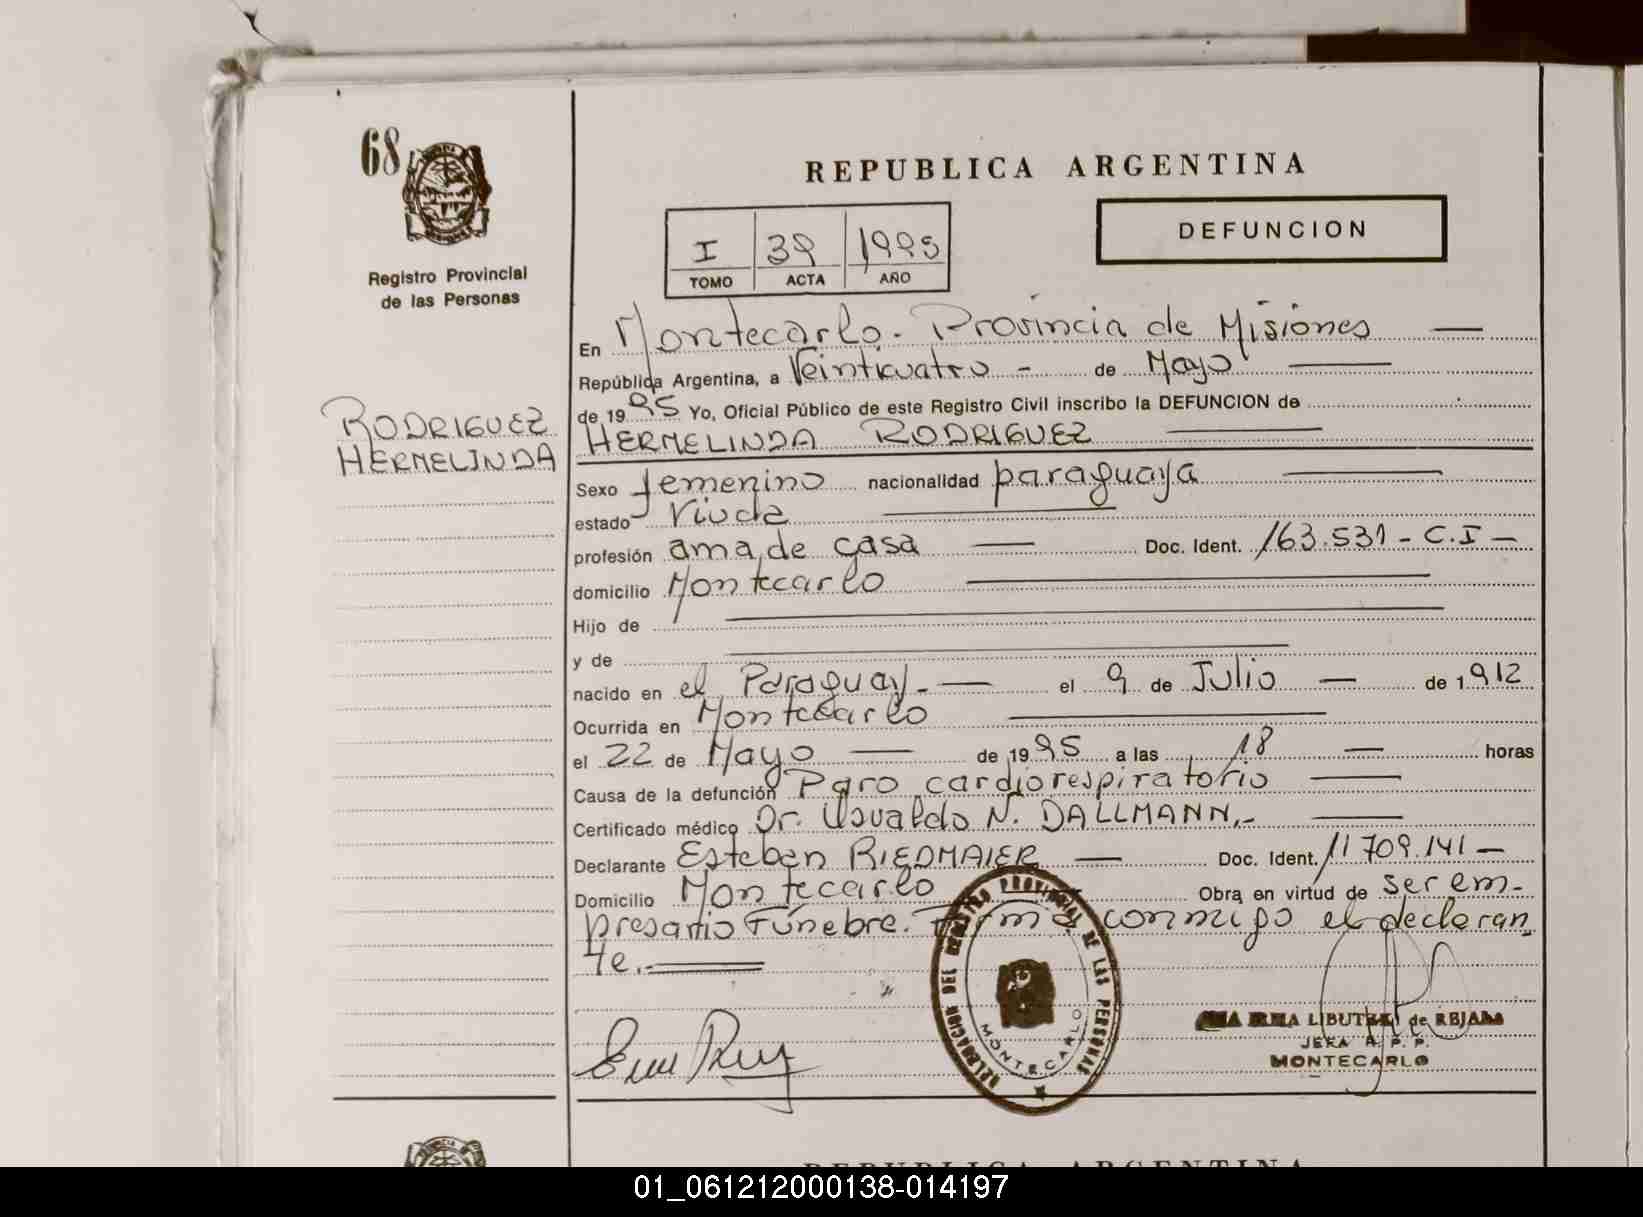 68
Registro Provincial
de las Personas
RODRIGUEZ
HERMELINDA
REPUBLICA ARGENTINA
I 39 1995
TOMO ACTA AÑO
DEFUNCION
En Montecarlo. Provincia de Misiones
República Argentina, a Veinticuatro - de Mayo
de 1995 Yo, Oficial Público de este Registro Civil inscribo la DEFUNCION de
HERMELINDA RODRIGUEZ
Sexo femenino nacionalidad paraguaya
estado Viuda
profesión ama de casa Doc. Ident. 163.531 - C.I -
domicilio Montecarlo
Hijo de
y de
nacido en el Paraguay.- el 9 de Julio de 1912
Ocurrida en Montecarlo
el 22 de Mayo de 1995 a las 18 horas
Causa de la defunción Paro cardiorespiratorio
Certificado médico Dr. Usualdo N. DALLMANN.-
Declarante Esteban RIEDMAIER Doc. Ident. 11709.141 -
Domicilio Montecarlo Obra en virtud de ser em-
presario Fúnebre. Firma conmigo el declaran
te.-
DELEGACION DEL REGISTRO PROVINCIAL DE LAS PERSONAS
MONTECARLO
LIBUTZKI de REJALA
JEFA R. P. P.
MONTECARLO
REPUBLICA ARGENTINA
01_061212000138-014197